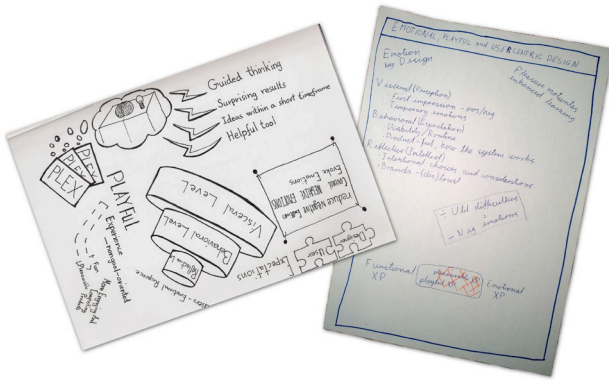 Guided thinking
Surprising results
Ideas within a short timeframe
Helpful tool
PLEX
PLEX
PLEX
PLAYFUL
Experience
nongoal-oriented
Fun
Visceral Level
Behavioral Level
Reflective
Evoke Emotions
Control NEGATIVE EMOTIONS
reduce Negative
Designer
User
Expectations
EMOTIONAL, PLAYFUL and USERCENTRIC DESIGN
Emotion
by Design
Pleasure motivates
enhanced learning
Visceral (Perception)
First impression - pos/neg
Temporary emotions
Behavioral (Expectation)
Usability/Routine
Product-feel, how the system works
Reflective (Intellect)
Intentional choices and considerations
Brands - (dis)loyal
difficulties
emotions
Functional
XP
playful XP
Emotional
XP